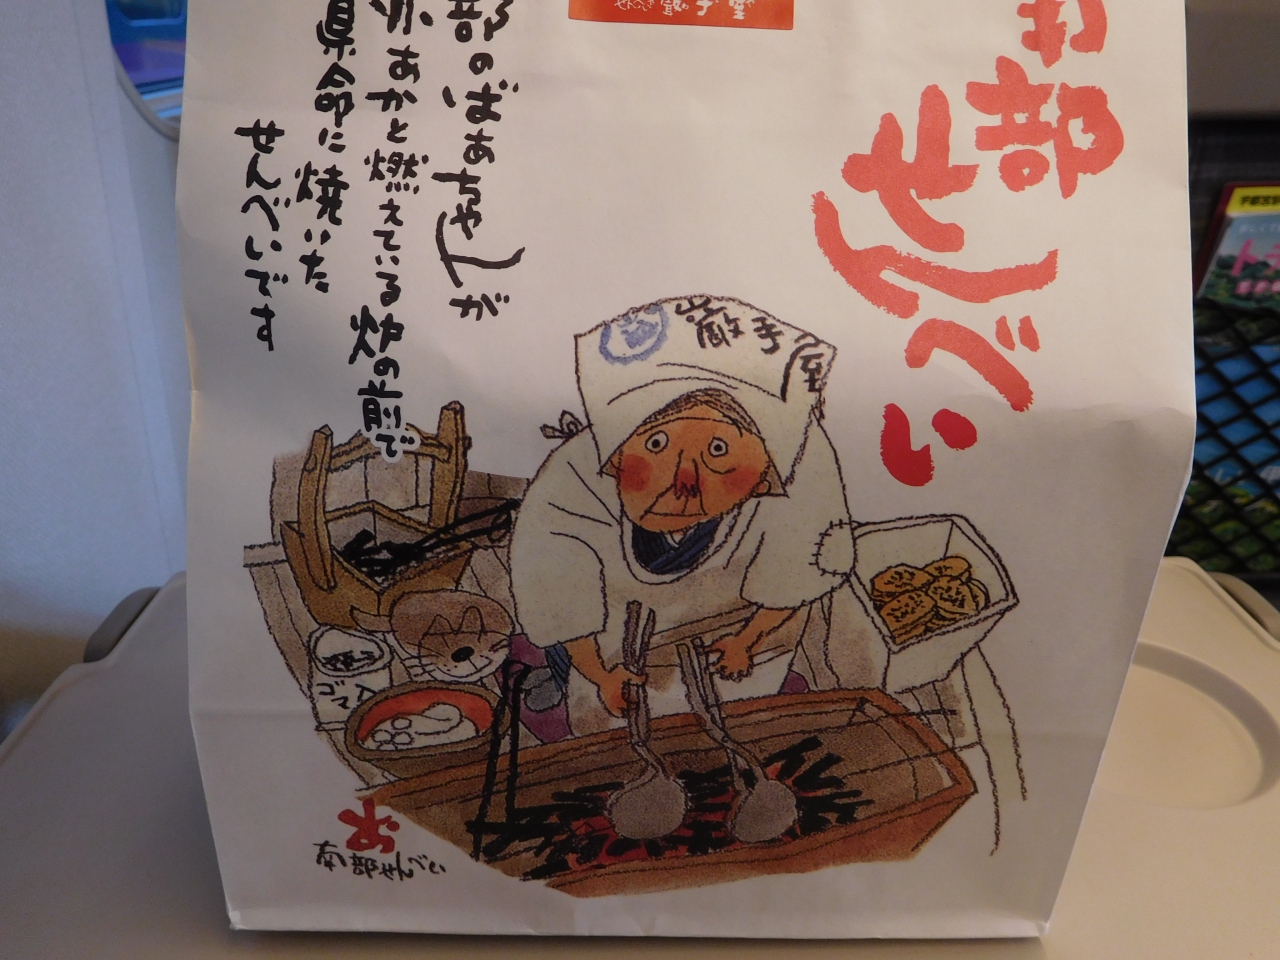 南部
せんべい
部のばあちゃんが
かあかと燃えている炉の前で
県命に焼いた
せんべいです
巌手屋
ゴマ入
南部せんべい